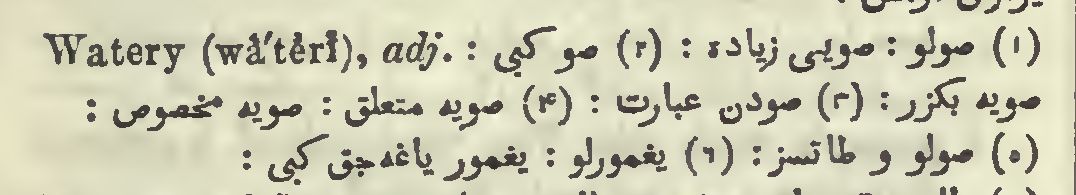 Watery (wȧ′tėrĭ), adj. : (۱) صولو : صویی زیاده : (۲) صو کبی
صویه بکزر : (۳) صودن عبارت : (۴) صویه متعلق : صویه مخصوص :
(۵) صولو و طاتسز : (۶) یغمورلو : یغمور یاغه‌جق کبی :